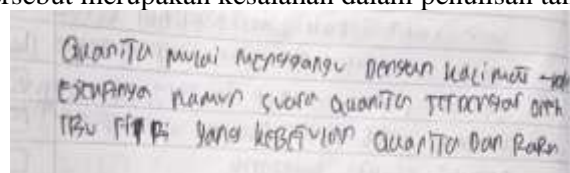 ersebut merupakan kesalahan dalam penulisan ta
QuaniTa mulai mengganggu Dengan Kalimat
namun suara QuaniTa Terdengar oleh
IBu FiTRi yang keBeTulan QuaniTa Dan RaRa